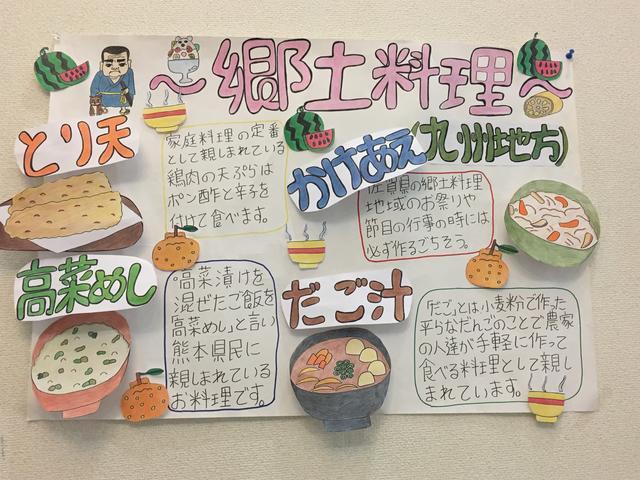 ～郷土料理～
(九州地方)
とり天
家庭料理の定番
として親しまれている
鶏肉の天ぷらは
ポン酢と辛子を
付けて食べます。
かけあえ
佐賀県の郷土料理
地域のお祭りや
節目の行事の時には
必ず作るごちそう。
高菜めし
"高菜漬けを
混ぜたご飯を
高菜めし」と言い
熊本県民に
親しまれている
お料理です。
だご汁
「だご」とは小麦粉で作った
平らなだんごのことで農家
の人達が手軽に作って
食べる料理として親し
まれています。